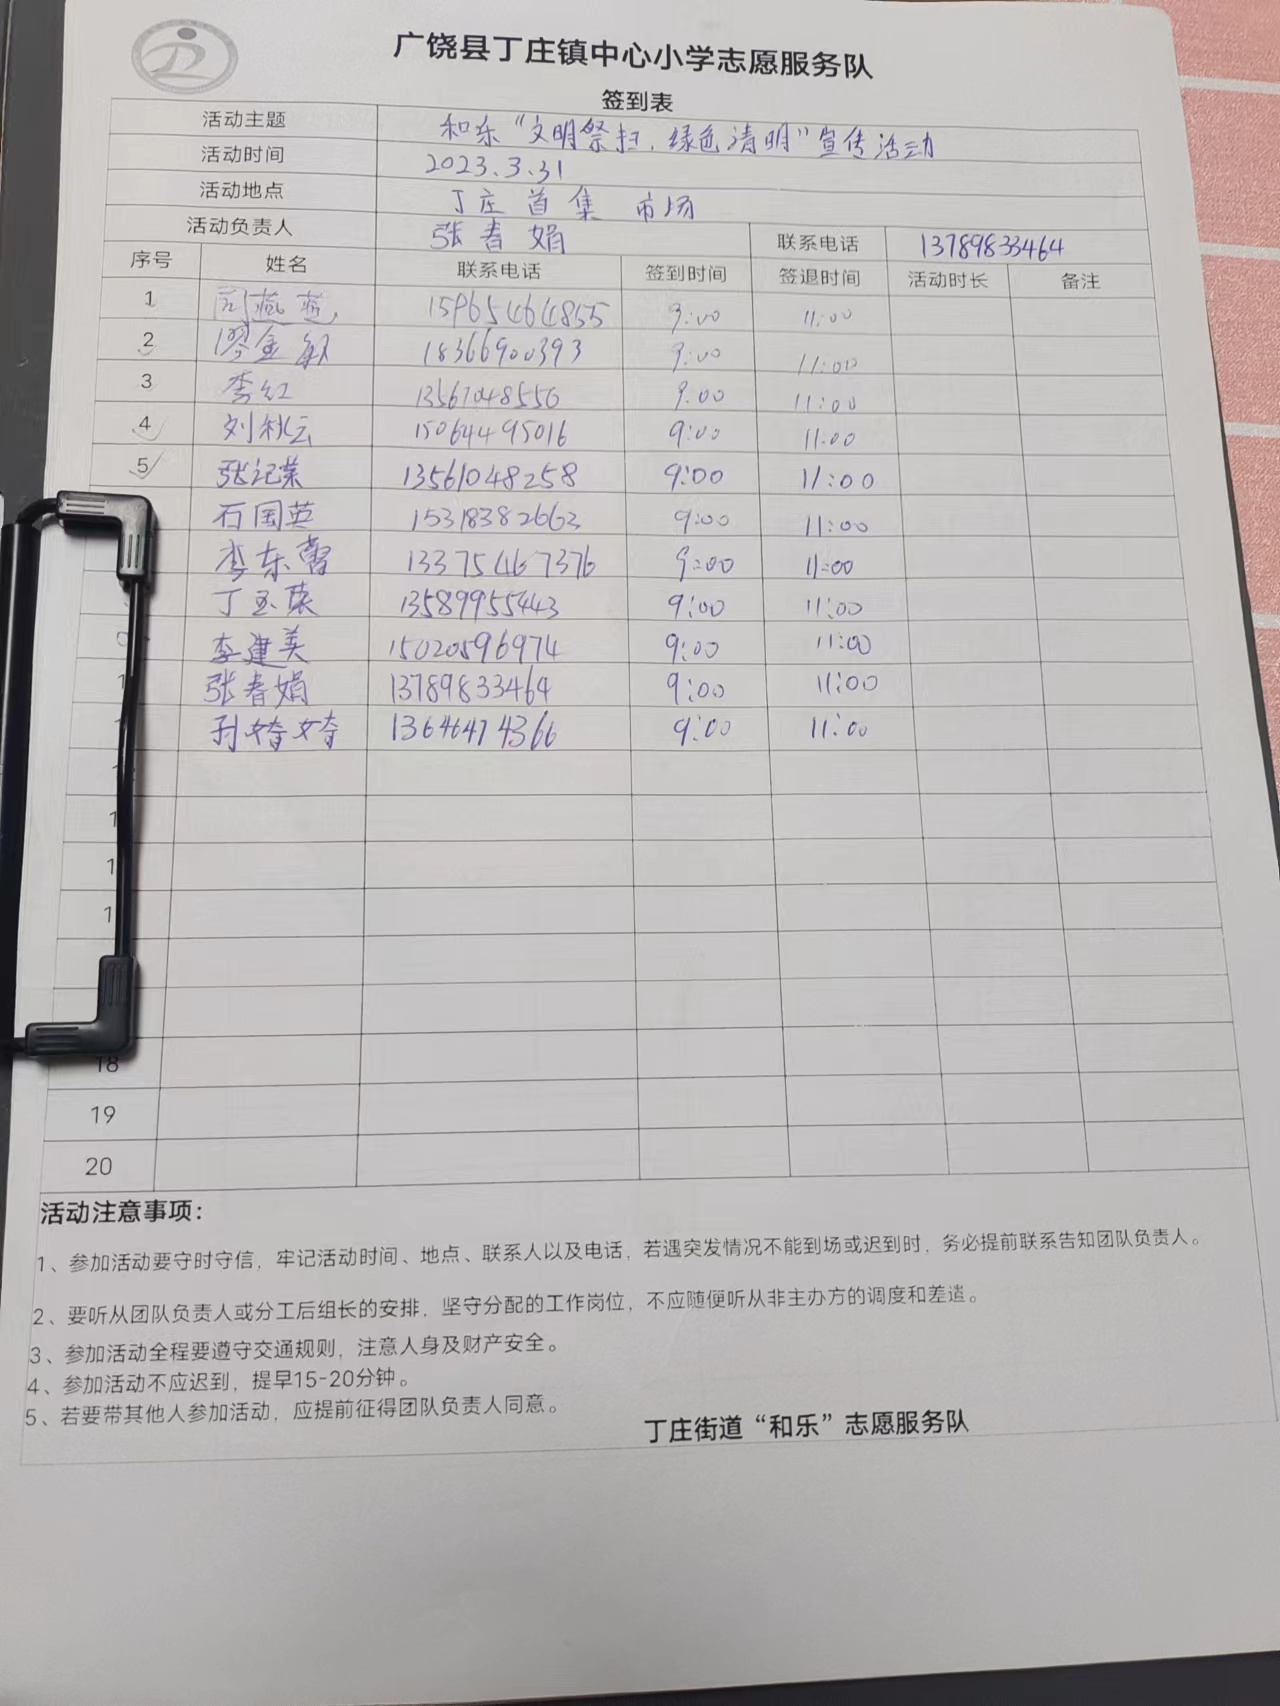 广饶县丁庄镇中心小学志愿服务队
签到表
活动主题 和乐“文明祭扫，绿色清明”宣传活动
活动时间 2023.3.31
活动地点 丁庄首集 市场
活动负责人 张春娟 联系电话 13789833464
序号 姓名 联系电话 签到时间 签退时间 活动时长 备注
1 15965464855 9:00 11:00
2 18366900393 9:00 11:00
3 李红 13561048556 9:00 11:00
4 刘秋云 15064495016 9:00 11:00
5 张记荣 13561048258 9:00 11:00
石国英 15318382663 9:00 11:00
李东 13375467376 9:00 11:00
丁玉荣 13589955443 9:00 11:00
李建美 15020596974 9:00 11:00
张春娟 13789833464 9:00 11:00
孙婷婷 13646474366 9:00 11:00
18
19
20
活动注意事项：
1、参加活动要守时守信，牢记活动时间、地点、联系人以及电话，若遇突发情况不能到场或迟到时，务必提前联系告知团队负责人。
2、要听从团队负责人或分工后组长的安排，坚守分配的工作岗位，不应随便听从非主办方的调度和差遣。
3、参加活动全程要遵守交通规则，注意人身及财产安全。
4、参加活动不应迟到，提早15-20分钟。
5、若要带其他人参加活动，应提前征得团队负责人同意。
丁庄街道“和乐”志愿服务队